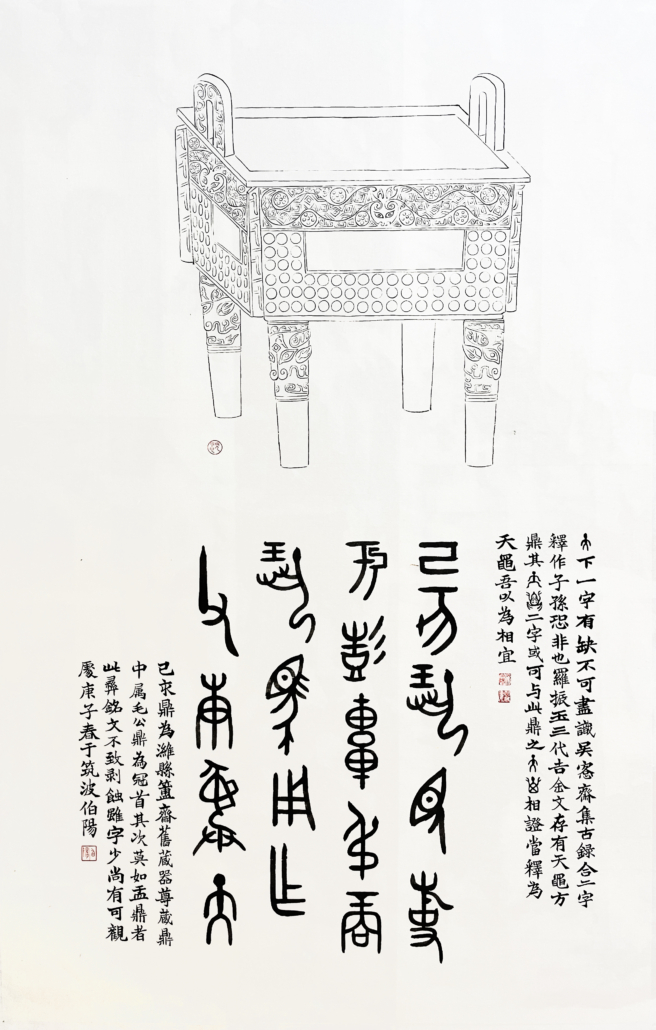 下一字有缺不可盡識吳愙齋集古錄合二字
釋作子孫恐非也羅振玉三代吉金文存有天黽方
鼎其二字或可与此鼎之相證當釋為
天黽吾以為相宜
己亥揚見事
于彭車叔商
揚馬用乍
父庚彝天
己亥鼎為濰縣簠齋舊藏器尊藏鼎
中属毛公鼎為冠首其次莫如盂鼎者
此彝銘文不致剥蝕雖字少尚有可觀
處庚子春于筑波伯陽